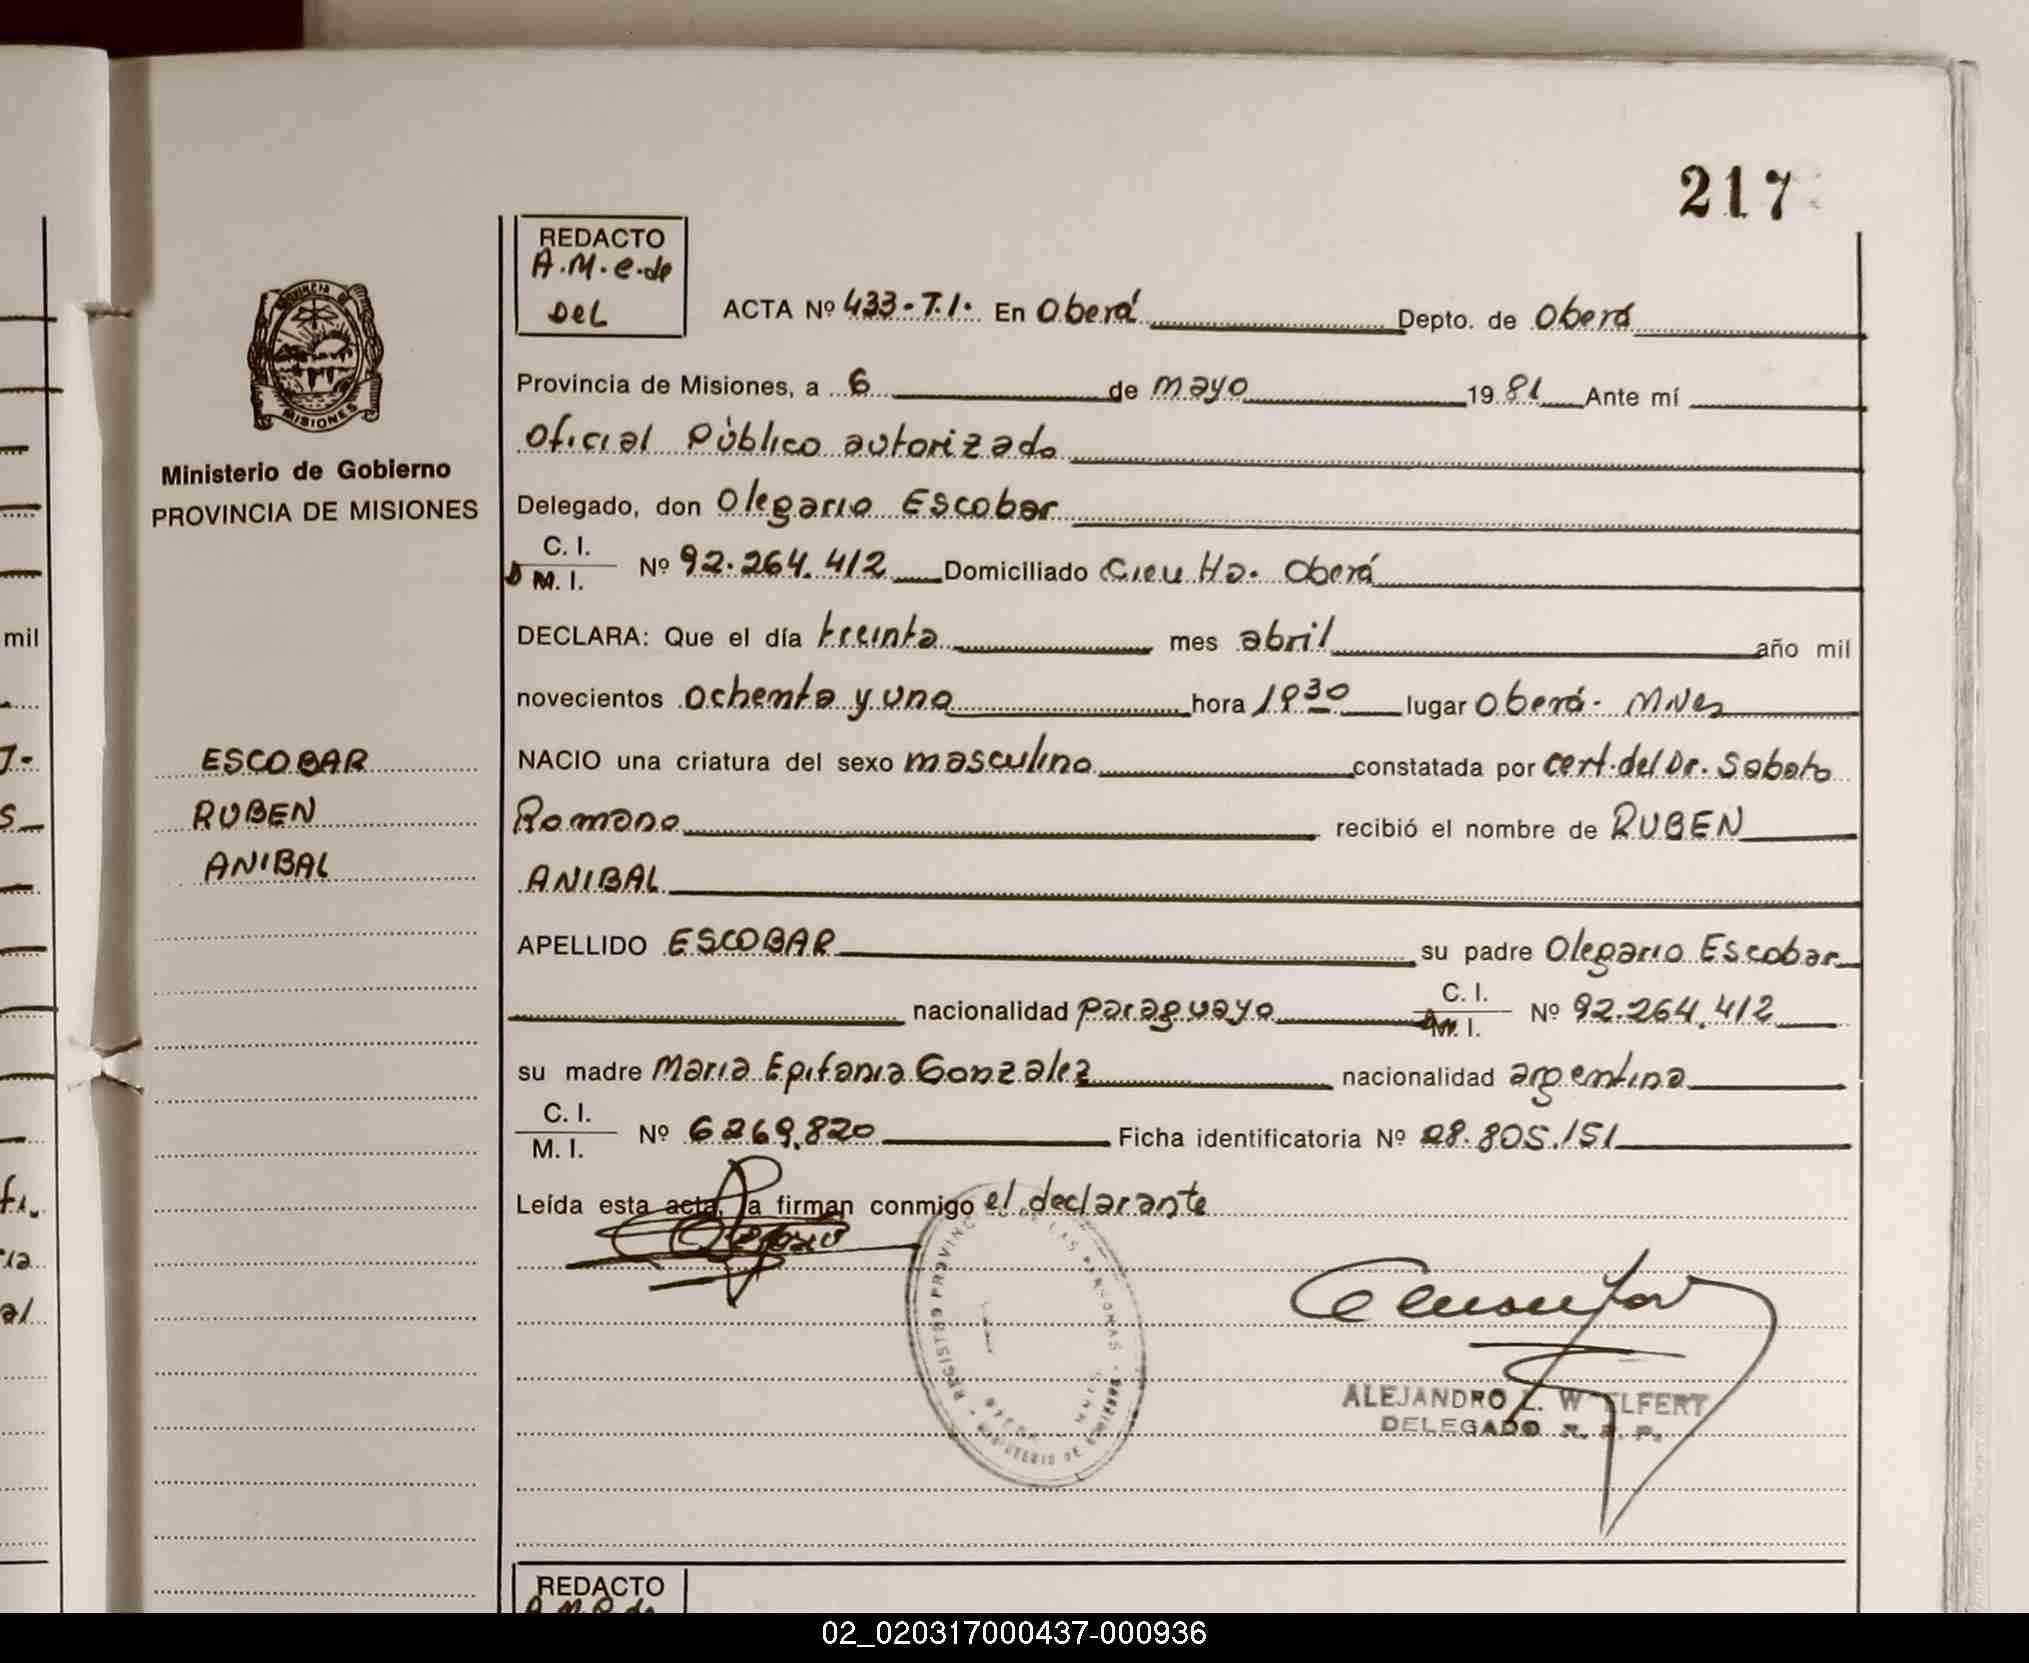 217
REDACTO
A.M.e.de
DEL
ACTA Nº 433-T.I. En Oberá Depto. de Oberá
PROVINCIA DE
MISIONES
Provincia de Misiones, a 6 de mayo 1981 Ante mí
Oficial Público autorizado
Ministerio de Gobierno
PROVINCIA DE MISIONES
Delegado, don Olegario Escobar
C. I.
D M. I. Nº 92.264.412 Domiciliado Oberá
mil
DECLARA: Que el día treinta mes abril año mil
novecientos ochenta y uno hora 1930 lugar Oberá - Mnes
ESCOBAR
RUBEN
ANIBAL
NACIO una criatura del sexo masculino constatada por cert. del Dr. Sabato
Romano recibió el nombre de RUBEN
ANIBAL
APELLIDO ESCOBAR su padre Olegario Escobar
nacionalidad paraguayo C. I. M. I. Nº 92.264.412
su madre Maria Epifania Gonzalez nacionalidad argentina
C. I.
M. I. Nº 6269.820 Ficha identificatoria Nº 28.805.151
Leída esta acta, la firman conmigo el declarante
REGISTRO PROVINC DE LAS PERSONAS - MINISTERIO DE GOBIERNO
ALEJANDRO L. WELFERT
DELEGADO R. P. P.
REDACTO
02_020317000437-000936